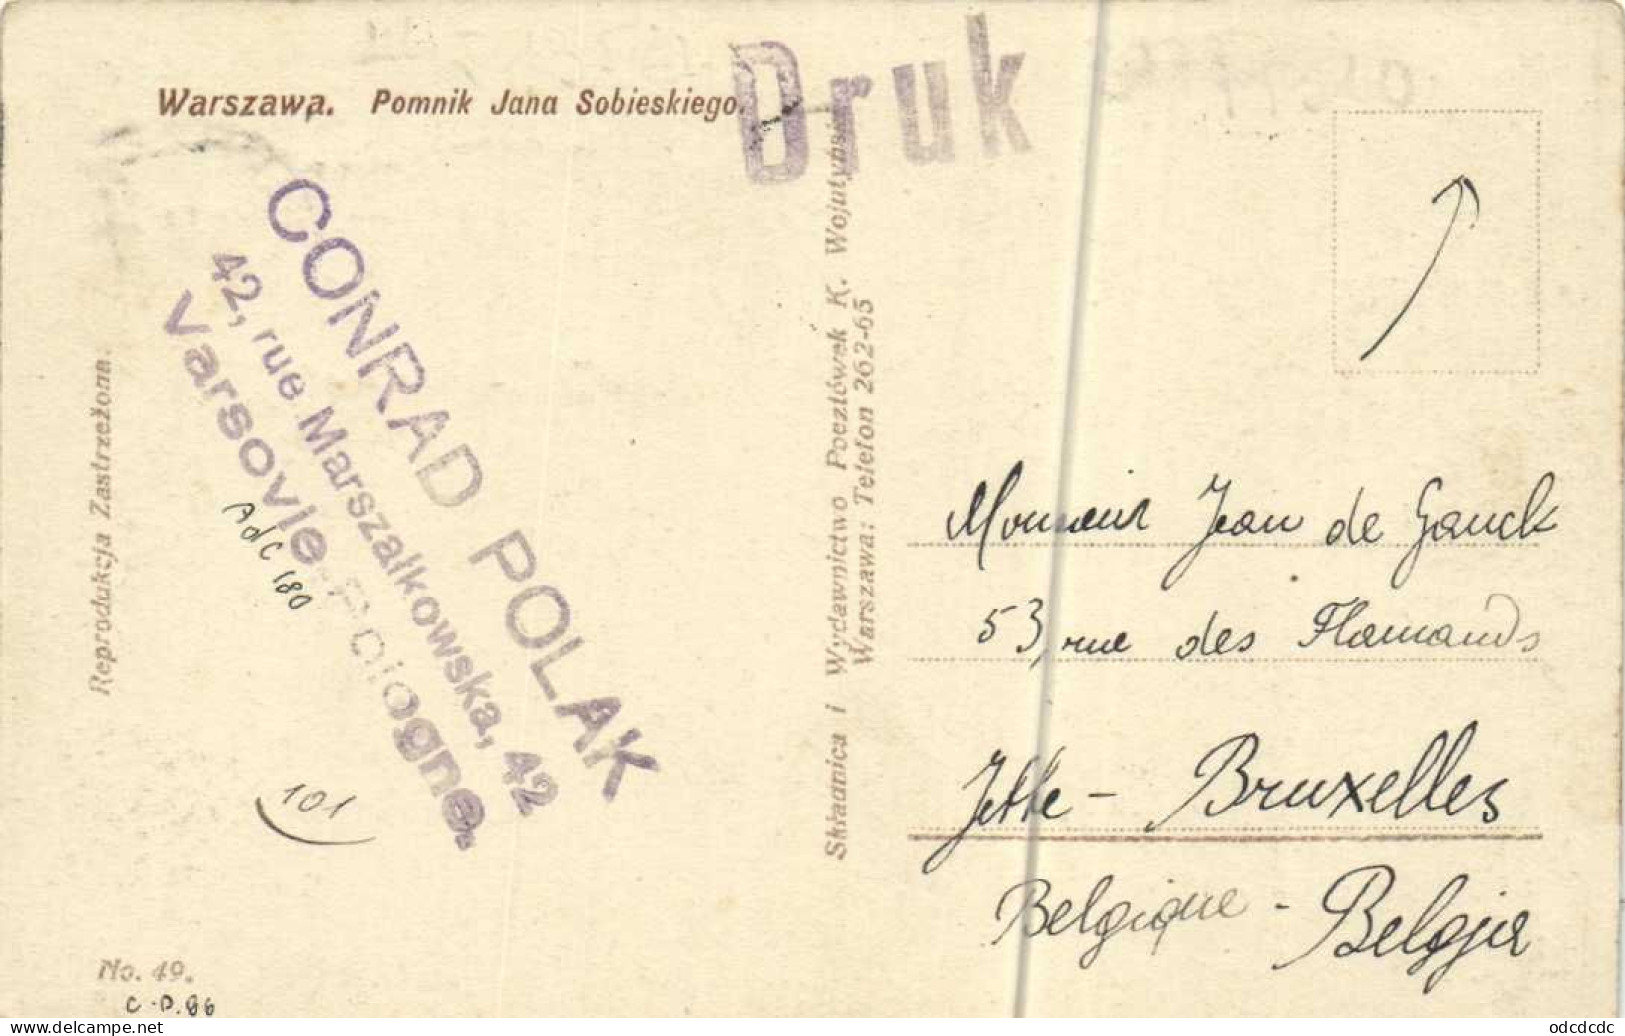 Warszawa. Pomnik Jana Sobieskiego.
Druk
CONRAD POLAK
42, rue Marszalkowska, 42
Varsovie-Pologne.
AdC 180
101
Reprodukcja Zastrzeżona.
No. 49.
C.D.86
Składnica i Wydawnictwo Pocztówek K. Wojutyński
Warszawa: Telefon 262-65
Monsieur Jean de Ganck
53, rue des Flamands
Jette - Bruxelles
Belgique - Belgja
delcampe.net
odcdcdc